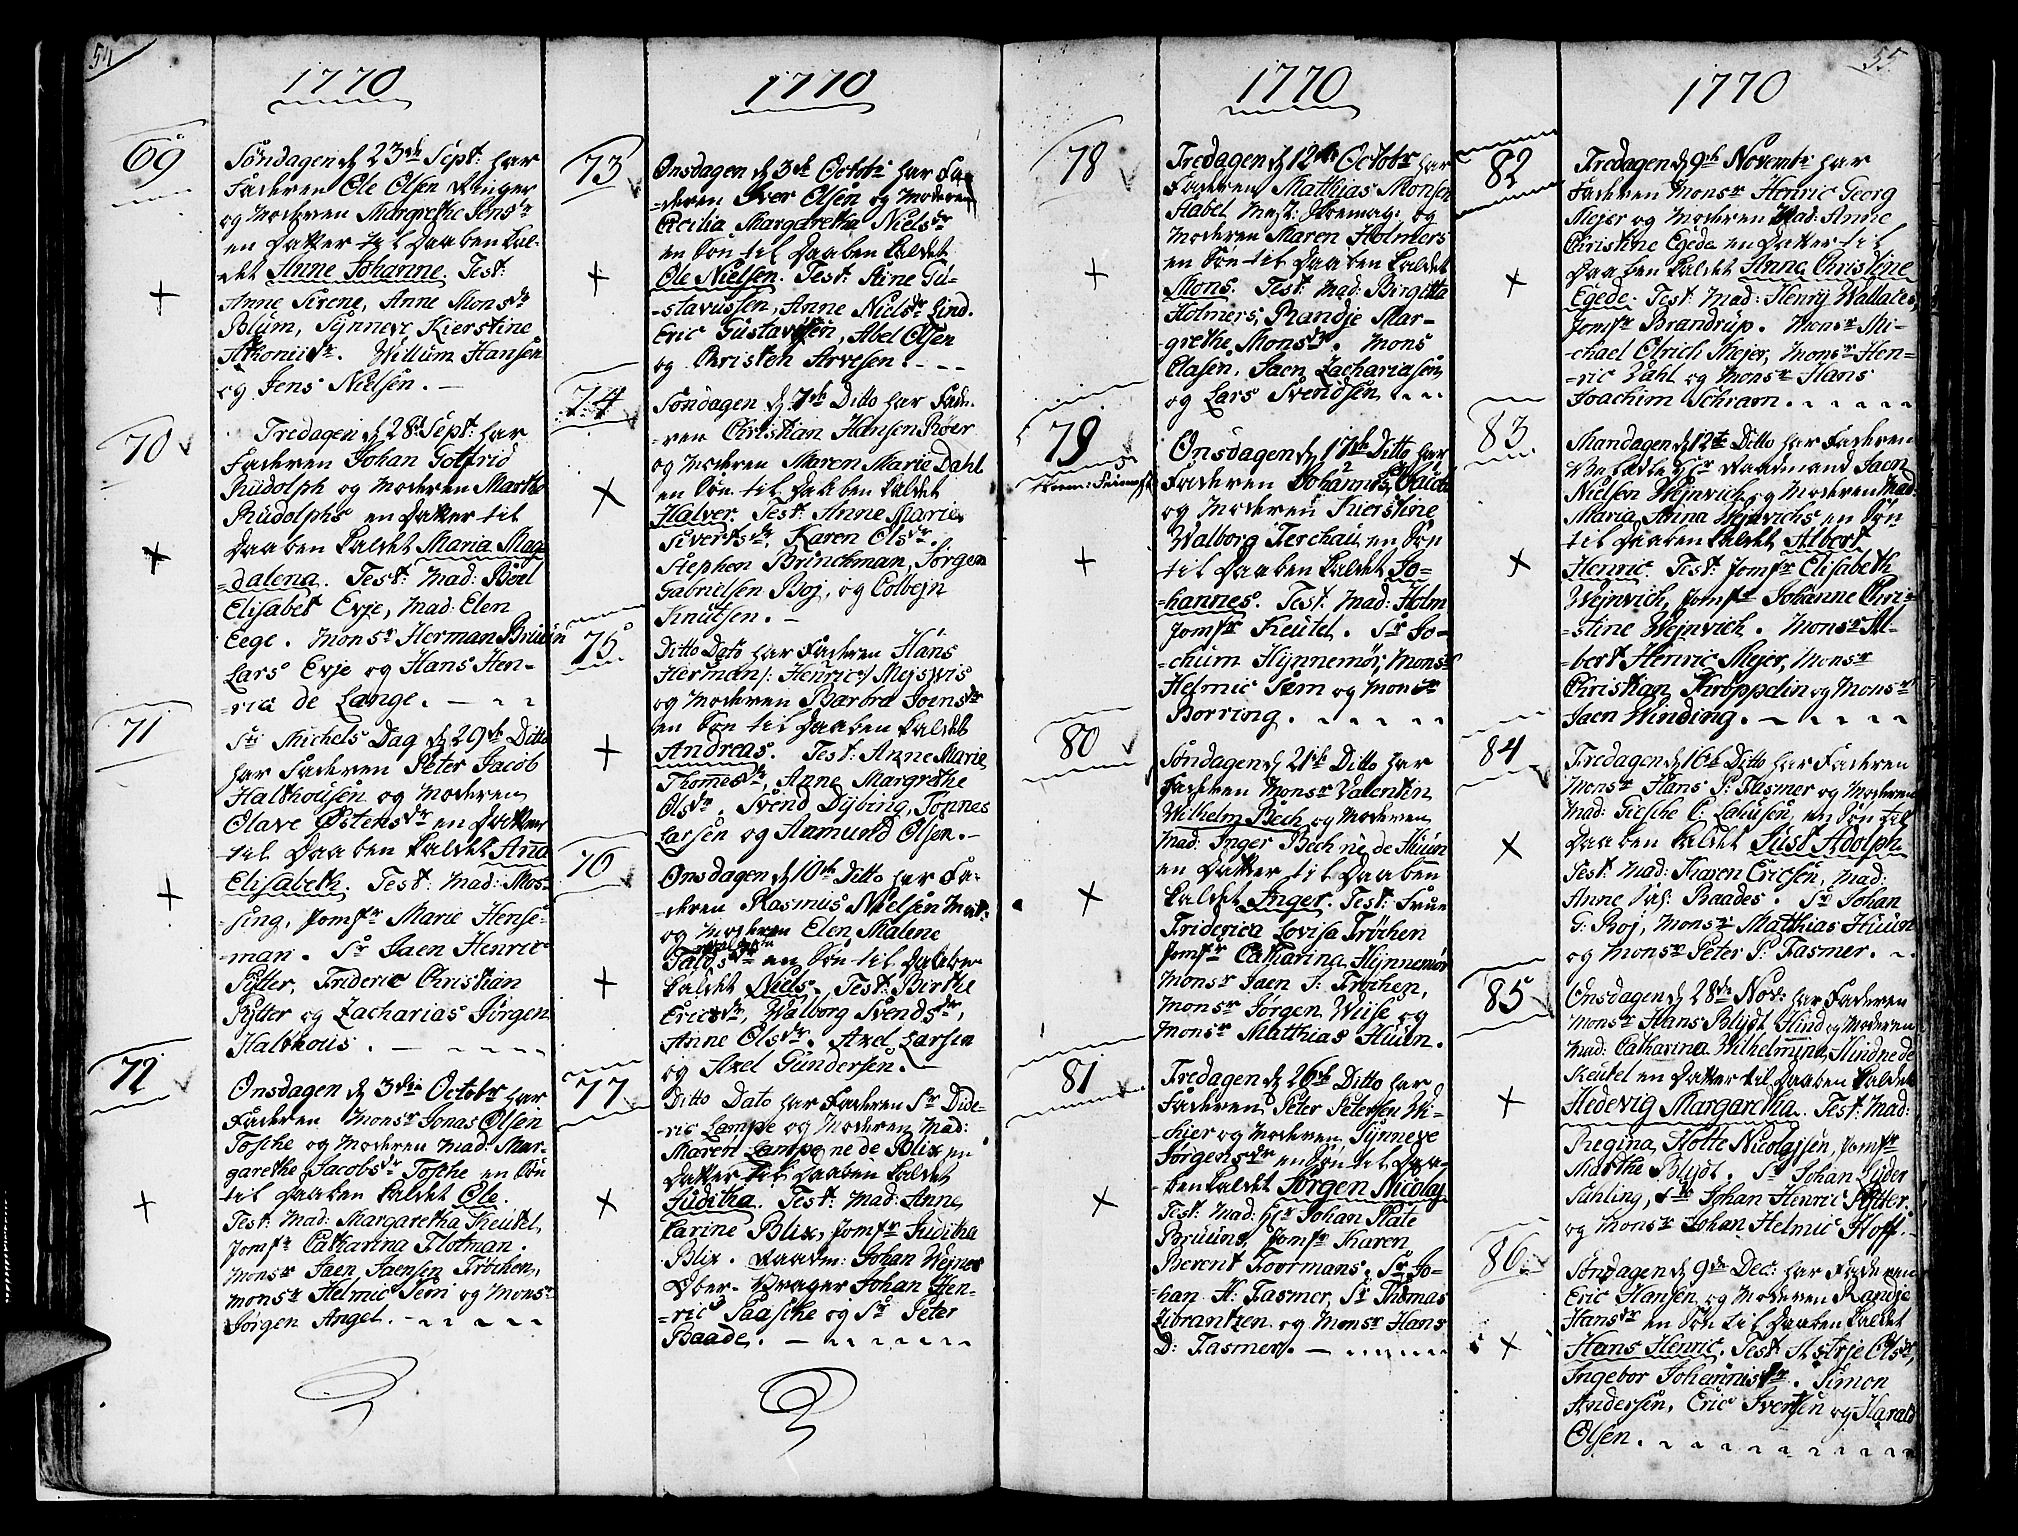 54
1770
69
Söndagen d 23de Sept: har
Faderen Ole Olsen Ringer
og Moderen Margrethe Jensdr
en Datter til Daaben kal-
det Anne Johanne. Test:
Anne Sirene, Anne Monsdr
Blüm, Synneve Kierstine
Willum Hansen
og Jens Nielsen.
70
Fredagen d 28de Sept: har
Faderen Johan Gotfrid
Rudolph og Moderen Marthe
Rudolphs en Datter til
Daaben kaldet Maria Mag
=dalena. Test: Mad: Boel
Elisabet Evje, Mad: Elen
Eege. Monsr Herman Bruuin
Lars Evje og Hans Hen-
-ric de Lange.
71
St: Michels Dag d 29de Ditto
har Faderen Peter Jacob
Halthousen og Moderen
Olave Østensdr en Datter
til Daaben kaldet Anna
Elisabeth. Test: Mad: Mos-
sing, Jomfr Marie Hense-
-man. Sr Jaen Henric
Pytter, Frideric Christian
Pytter og Zacharias Jørgen
Halthous.
72
Onsdagen d 3die Octobr har
Faderen Monsr Jonas Olsen
Tosche og Moderen Mad: Mar-
garethe Jacobsdr Tosche en Søn
til Daaben kaldet Ole.
Test: Mad: Margaretha Keutel,
Jomfr Catharina Flotman.
Monsr Jaen Jaensen Frøchen,
Monsr Helmic Sem og Monsr
Jørgen Angel.
1770
73
Onsdagen d 3de Octobr har Fa
=deren Iver Olsen og Moderen
Cicilia Margaretha Nielsdr
en Søn til Daaben kaldet
Ole Nielsen. Test: Stine Gu-
-stavussen, Anne Nielsdr Lind.
Eric Gustavesen, Abel Olsen
og Christen Arvesen.
74
Søndagen d 7de Ditto har Fade-
-ren Christian Hansen Røer
og Moderen Maren Marie Dahl
en Søn til Daaben kaldet
Halver. Test: Anne Marie
Sivertsdr, Karen Olsdr.
Stephen Brinckman, Jørgen
Gabrielsen Boj, og Colbejn
Knutsen.
75
Ditto Dato har Faderen Hans
Herman /: Henric:/ Mejswis
og Moderen Barbra Joensdr
en Søn til Daaben kaldet
Andreas. Test: Anne Marie
Thomesdr, Anne Margrethe
Olsdr. Svend Dybing, Tønnes
Larsen og Aamund Olsen.
76
Onsdagen d 10de Ditto har Fa-
-deren Rasmus Nielsen Mat:
og Moderen Elen Malene
Faldsdr en Søn til Daaben
kaldet Niels. Test: Birthe
Ericsdr, Walborg Svendsdr,
Anne Olsdr. Axel Larsen
og Axel Gundersen.
77
Ditto Dato har Faderen Sr Dide-
-ric Lampe og Moderen Mad:
Maren Lampe ne de Blix en
Datter til Daaben kaldet
Juditha. Test: Mad: Anne
Carine Blix, Jomfr Juditha
Blix. Raadm: Johan Wejner
Ober-Vrager Johan Hen-
=ric Paasche og Sr Peter
Baade.
1770
78
Fredagen d 12te Octobr har
Faderen Matthias Monsen
Stabel Mest: Skomag: og
Moderen Maren Holmers
en Søn til Daaben kaldet
Mons. Test: Mad: Birgitta
Holmers, Randje Mar-
grethe Monsdr. Mons
Clasen, Jaen Zachariasen
og Lars Svendsen
79
Onsdagen d 17de Ditto har
Faderen Johannes
og Moderen Kierstine
Walborg Terchau en Søn
til Daaben kaldet Jo-
=hannes. Test: Mad: Holm
Jomfr Keutel. Sr Jo-
-chum Hynnemør, Monsr
Helmic Sem og Monsr
Borring.
80
Søndagen d 21de Ditto har
Faderen Monsr Valentin
Wilhelm Bech og Moderen
Mad: Inger Bech ne de Huun
en Datter til Daaben
kaldet Inger. Test: Frue
Friderica Lovisa Frøchen
Jomfr Catharina Hynnemør
Monsr Jaen J: Frøchen,
Monsr Jørgen Wiise og
Monsr Matthias Huun.
81
Fredagen d 26de Ditto har
Faderen Peter Petersen Wi-
-chier og Moderen Synneve
Jørgensdr en Søn til Daa-
-ben kaldet Jørgen Nicolaj
Test: Mad: Sr Johan Plate
Bruuns, Jomfr Karen
Berent Foormans. Sr Jo-
=han H: Fasmer, Sr Thomas
Zibrantzen og Monsr Hans
D: Fasmer.
55
1770
82
Fredagen d 9de Novembr har
Faderen Monsr Henric Georg
Mejer og Moderen Mad: Anne
Christine Egede en Datter til
Daaben kaldet Anne Christine
Egede. Test: Mad: Henry Wallaces,
Jomfr Brandrup. Monsr Mi-
-chael Olrich Mejer, Monsr Hen=
=ric Dahl og Monsr Hans
Joachim Schram.
83
Mandagen d 12te Ditto har Faderen
Velædle Hr Raadmand Jaen
Nielsen Wejnvich og Moderen Mad:
Maria Anna Wejnvichs en Søn
til Daaben kaldet Albert
Henric. Test: Jomfr Elisabeth
Wejnvich, Jomfr Johanne Chri-
=stine Wejnvich. Monsr Al-
=bert Henric Mejer, Monsr
Christian Krøppelin og Monsr
Jaen Winding.
84
Fredagen d 16de Ditto har Faderen
Monsr Hans P: Fasmer og Moderen
Mad: Giesche C: Lahusen, en Søn til
Daaben kaldet Just Adolph
Test: Mad: Karen Ericsen, Mad:
Anne Jac: Baades. Sr Johan
G: Boj, Monsr Matthias Huun
og Monsr Peter P: Fasmer.
85
Onsdagen d 28de Nov: har Faderen
Monsr Hans Blydt Hind og Moderen
Mad: Catharina Wilhelmina Hind ne de
Keutel en Datter til Daaben kaldet
Hedevig Margaretha. Test: Mad:
Regina Holte Nicolajsen, Jomfr
Marthe Blydt. Sr Johan Lyder
Suhling, Sr Johan Henric Pytter
og Monsr Johan Helmic Hoff.
86
Søndagen d 9de Dec: har Faderen
Eric Hansen og Moderen Randje
Hansdr en Søn til Daaben kaldet
Hans Henric. Test: Astrje Olsdr,
Ingebor Johannisdr. Simon
Andersen, Eric Ivertsen og Harald
Olsen.